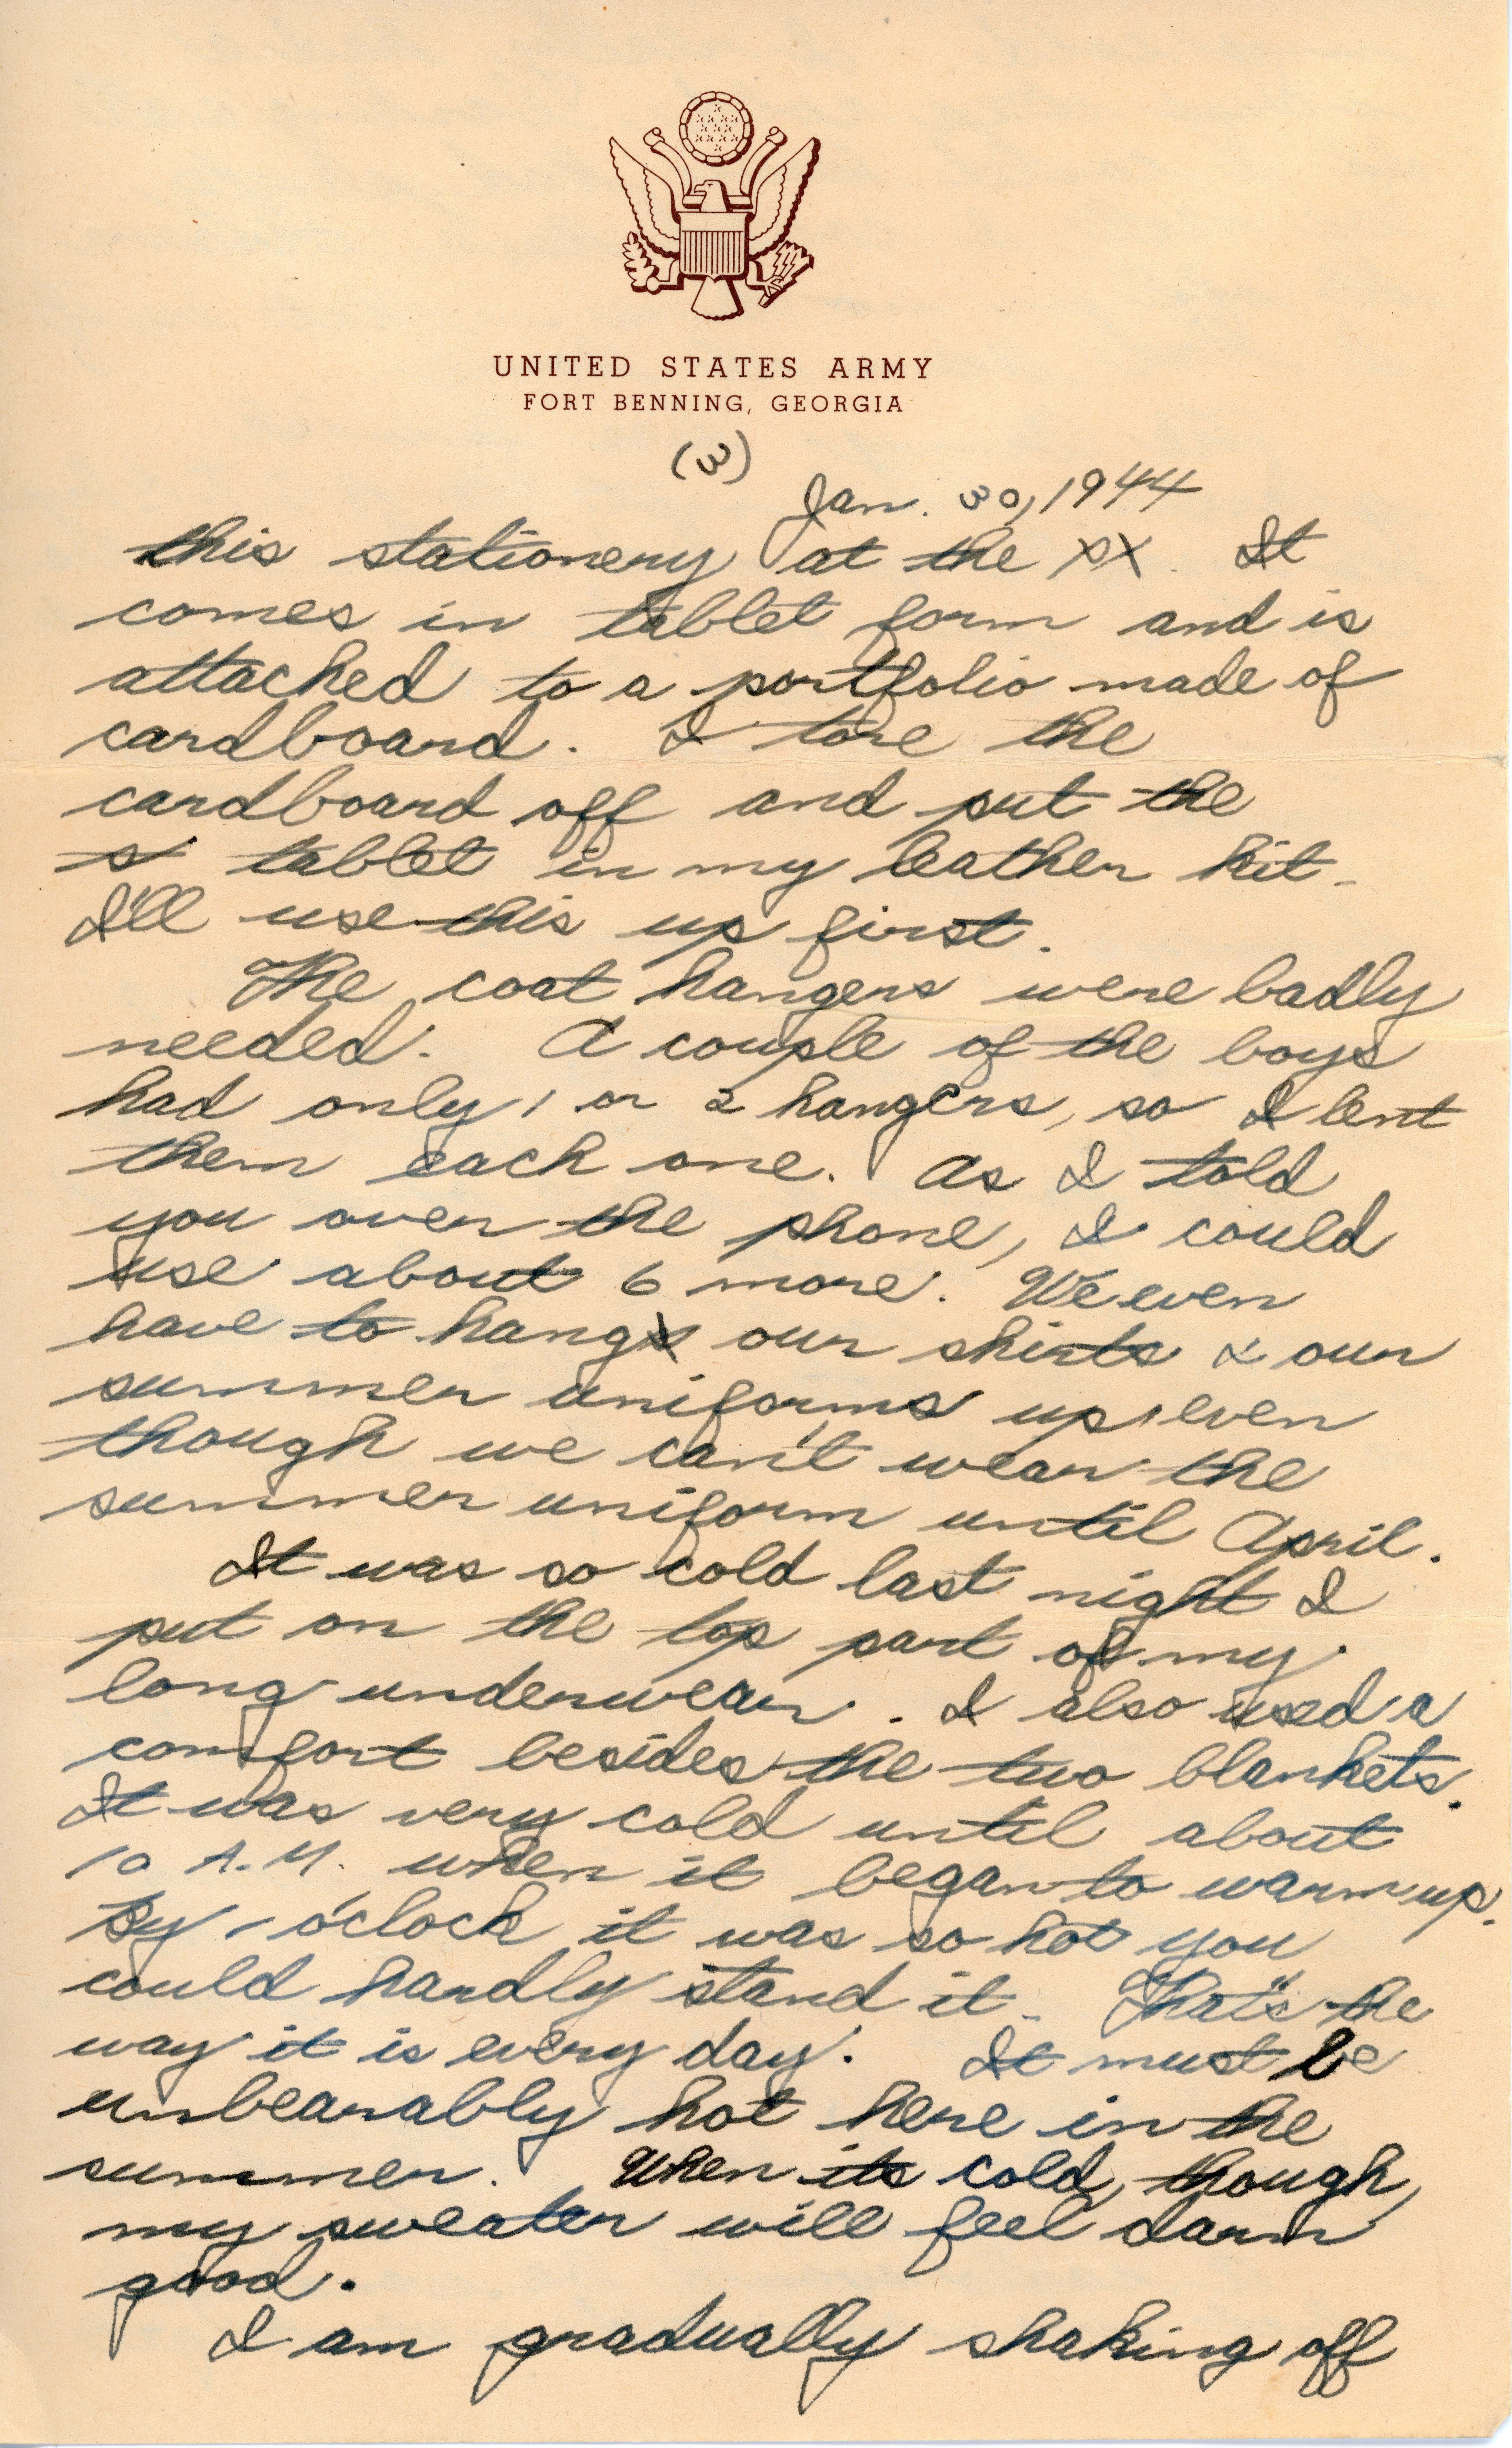 UNITED STATES ARMY
FORT BENNING, GEORGIA
(3)
Jan. 30, 1944
this stationery at the PX. It
comes in tablet form and is
attached to a portfolio made of
cardboard. I tore the
cardboard off and put the
s tablet in my leather kit.
I'll use this up first.
The coat hangers were badly
needed. A couple of the boys
had only 1 or 2 hangers, so I lent
them each one. As I told
you over the phone, I could
use about 6 more. We even
have to hang our shirts & our
summer uniforms up, even
though we can't wear the
summer uniform until April.
It was so cold last night I
put on the top part of my
long underwear. I also used a
comfort besides the two blankets.
It was very cold until about
10 A.M. when it began to warm up.
By 1 o'clock it was so hot you
could hardly stand it. That's the
way it is every day. It must be
unbearably hot here in the
summer. When its cold, though,
my sweater will feel darn
good.
I am gradually shaking off